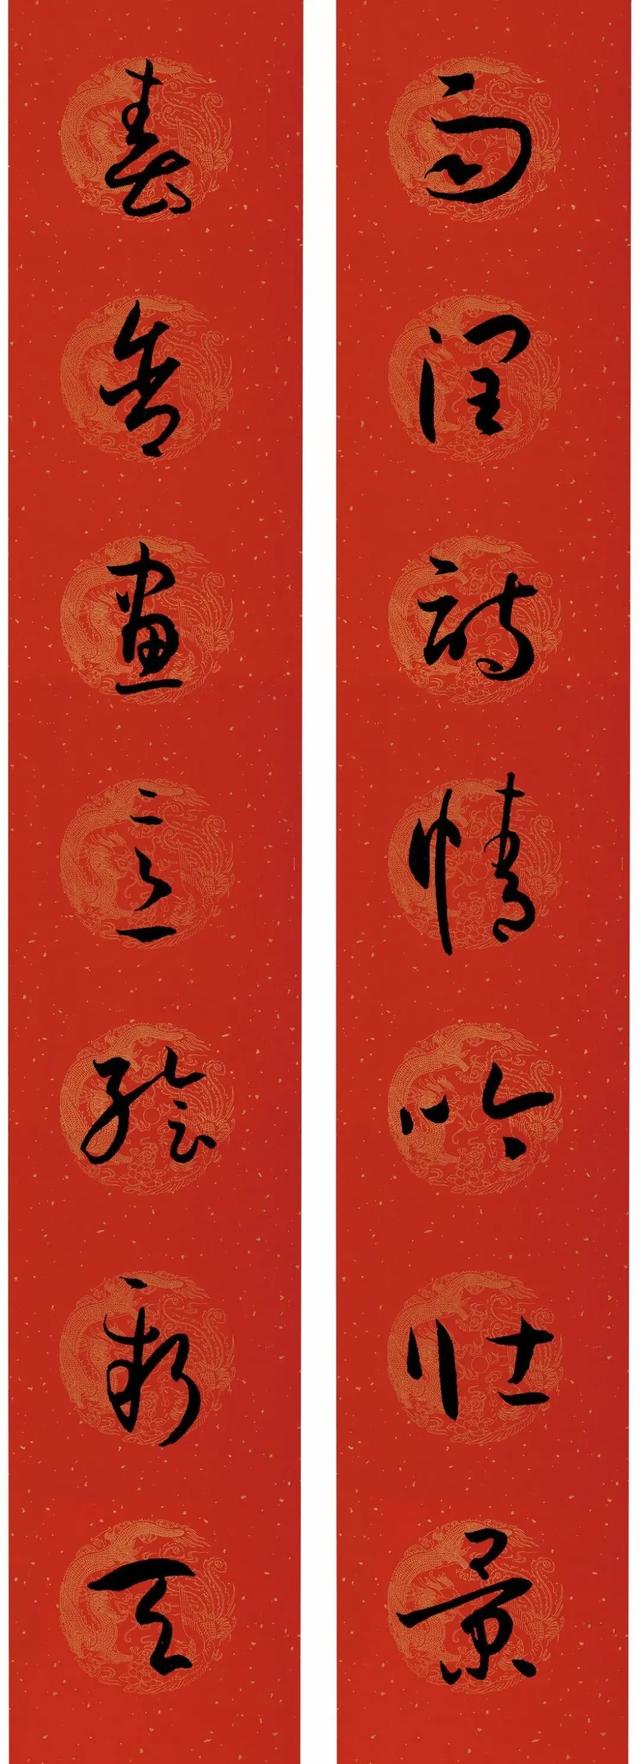 雨潤詩情吟壯景
春香畫意繪新天